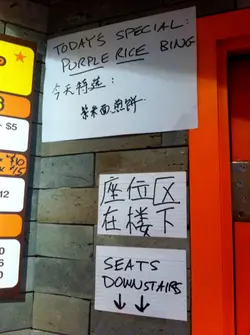 TODAY'S SPECIAL:
PURPLE RICE BING
今天特选：
紫米面煎饼
座位区
在楼下
SEATS
DOWNSTAIRS
↓↓
$5
$10
12